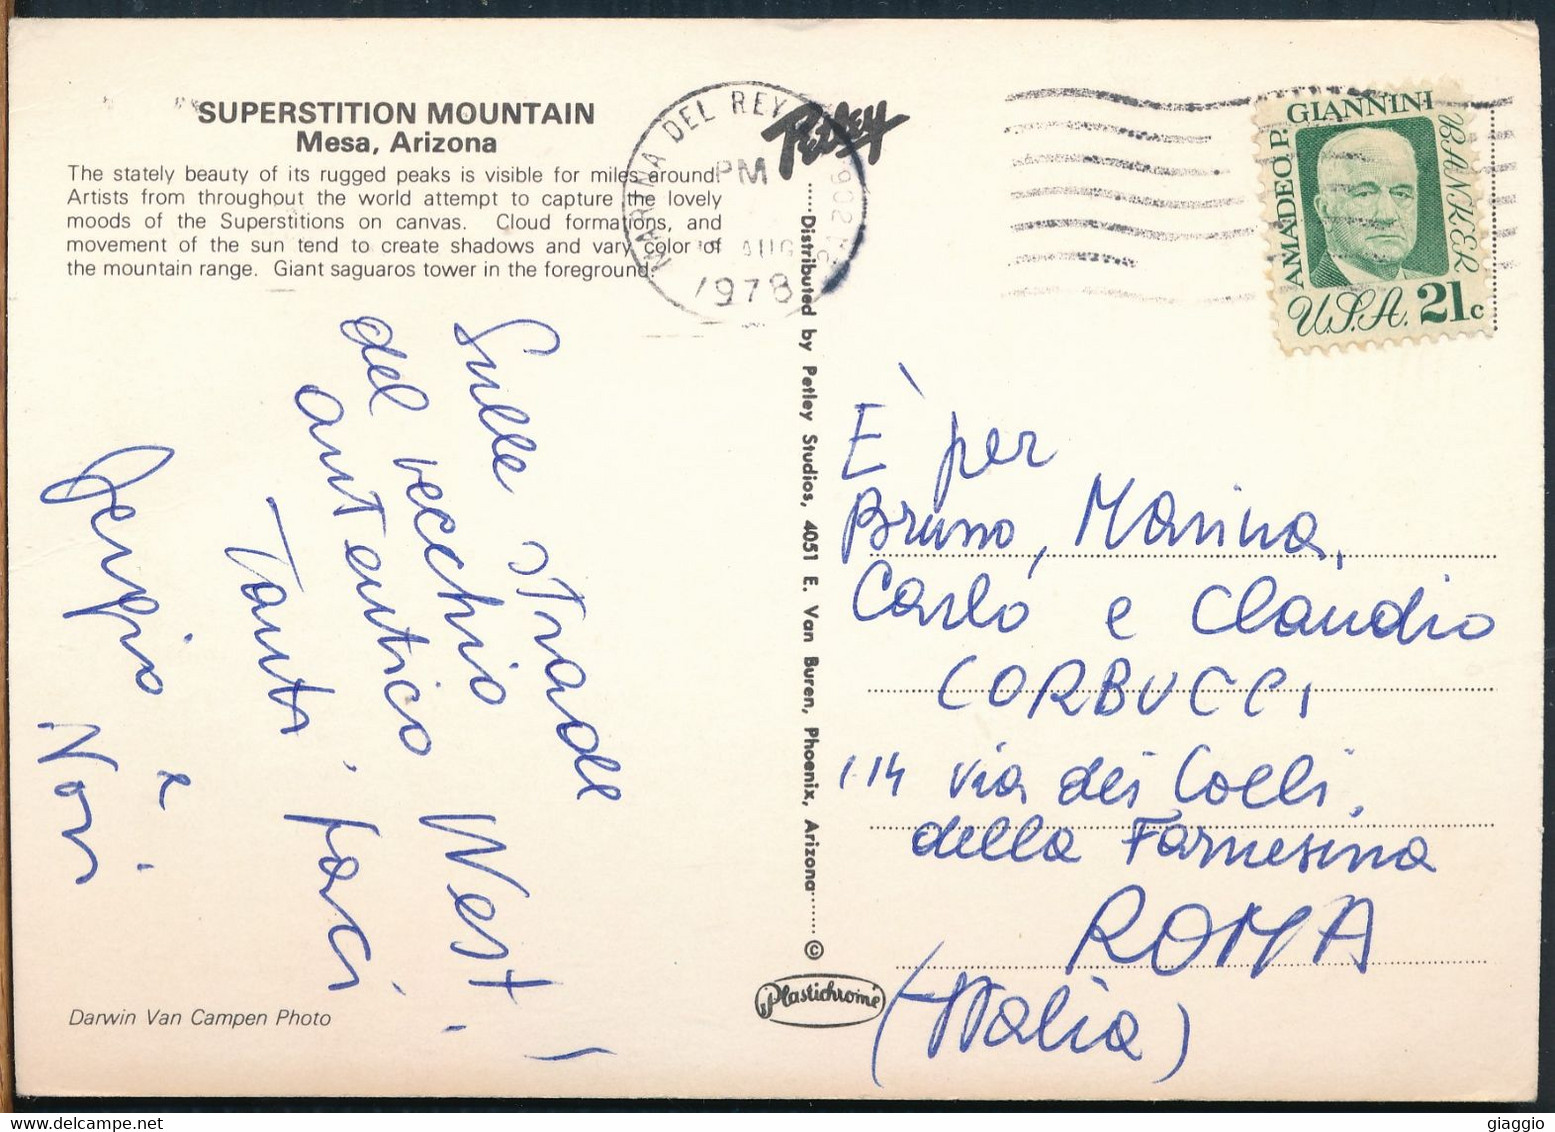 SUPERSTITION MOUNTAIN
Mesa, Arizona
The stately beauty of its rugged peaks is visible for miles around.
Artists from throughout the world attempt to capture the lovely
moods of the Superstitions on canvas. Cloud formations, and
movement of the sun tend to create shadows and vary color of
the mountain range. Giant saguaros tower in the foreground.
Sulle strade
del vecchio West!
autentico.
Tanti baci
e
Nori
Darwin Van Campen Photo
MARINA DEL REY
PM
AUG
1978
Petley
Distributed by Petley Studios, 4051 E. Van Buren, Phoenix, Arizona ©
Plastichrome
AMADEO P. GIANNINI
BANKER
U.S.A. 21c
È per
Bruno, Marina,
Carlo e Claudio
CORBUCCI
114 via dei Colli
della Farnesina
ROMA
(Italia)
giaggio